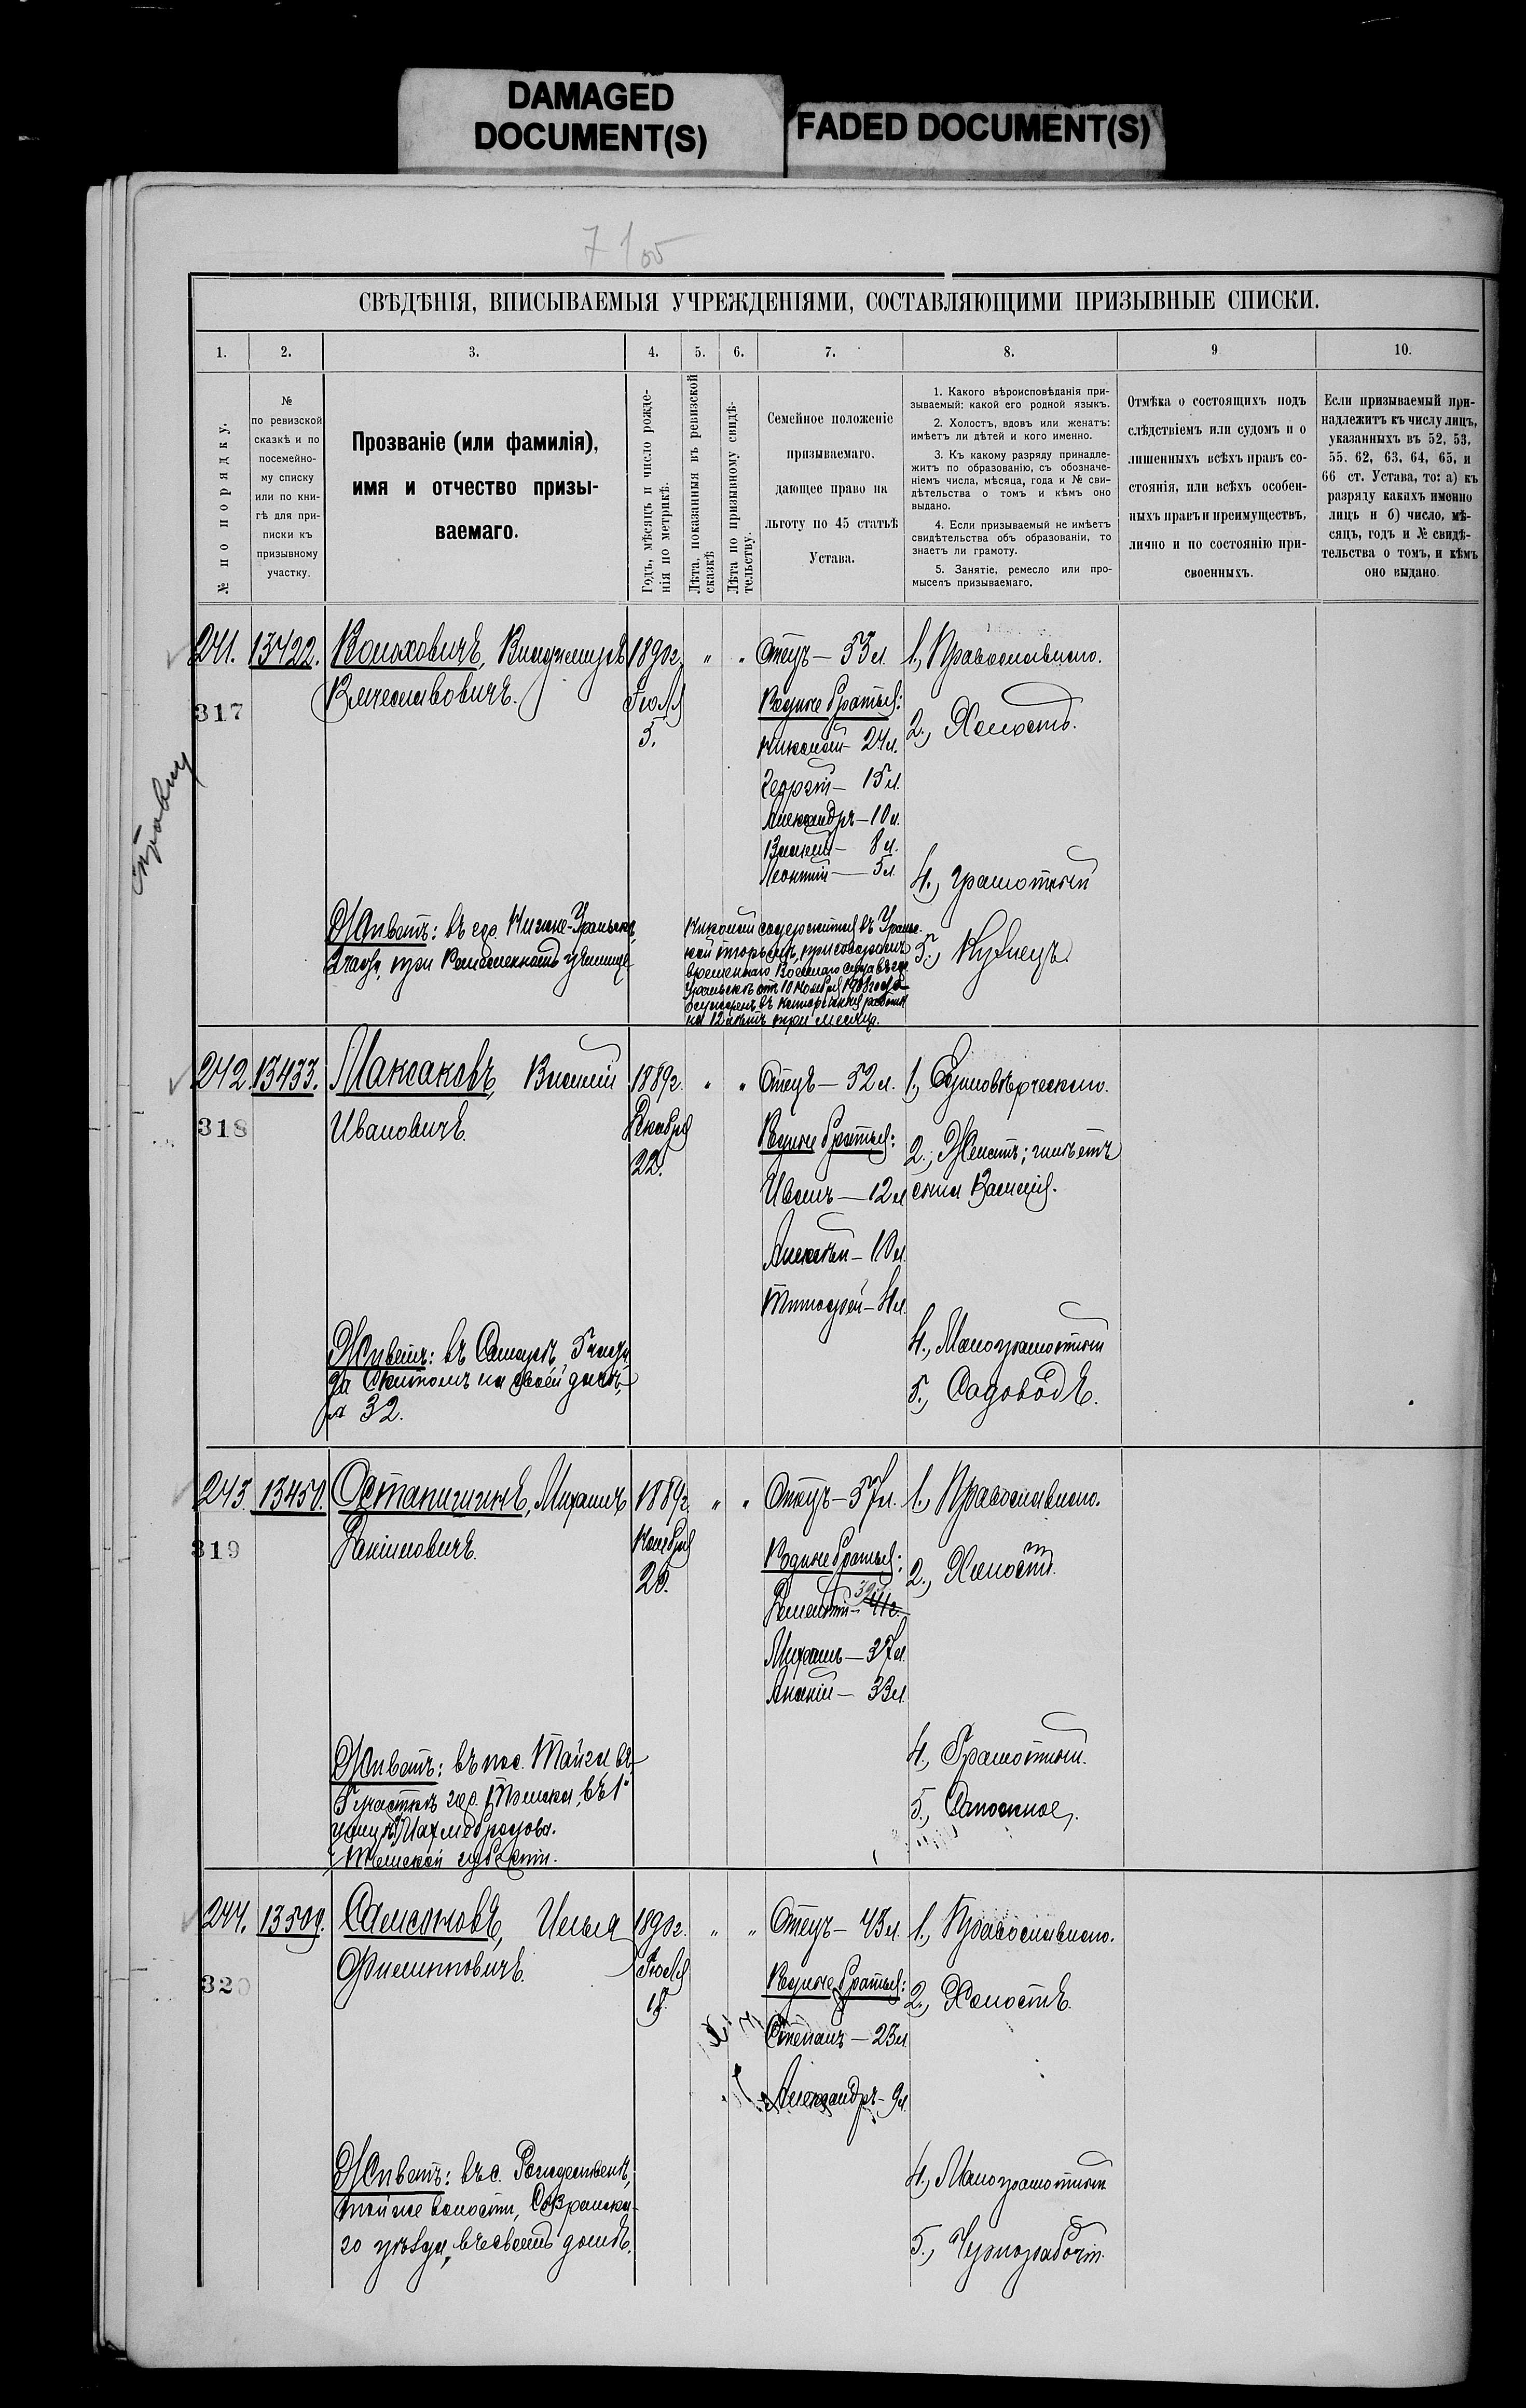 DAMAGED
DOCUMENT(S)
FADED DOCUMENT(S)
СВѢДѢНІЯ, ВПИСЫВАЕМЫЯ УЧРЕЖДЕНІЯМИ, СОСТАВЛЯЮЩИМИ ПРИЗЫВНЫЕ СПИСКИ.
1. 2. 3. 4. 5. 6. 7. 8. 9 10.
№ по порядку.
№
по ревизской
сказкѣ и по
посемейно-
му списку
или по кни-
гѣ для при-
писки къ
призывному
участку.
Прозваніе (или фамилія),
имя и отчество призы-
ваемаго.
Годъ, мѣсяцъ и число рожде-
нія по метрикѣ.
Лѣта, показанныя въ ревизской
сказкѣ
Лѣта по призывному свидѣ-
тельству.
Семейное положеніе
призываемаго,
дающее право на
льготу по 45 статьѣ
Устава.
1. Какого вѣроисповѣданія при-
зываемый: какой его родной языкъ.
2. Холостъ, вдовъ или женатъ:
имѣетъ ли дѣтей и кого именно.
3. Къ какому разряду принадле-
житъ по образованію, съ обозначе-
ніемъ числа, мѣсяца, года и № сви-
дѣтельства о томъ и кѣмъ оно
выдано.
4. Если призываемый не имѣетъ
свидѣтельства объ образованіи, то
знаетъ ли грамоту.
5. Занятіе, ремесло или про-
мыселъ призываемаго.
Отмѣка о состоящихъ подъ
слѣдствіемъ или судомъ и о
лишенныхъ всѣхъ правъ со-
стоянія, или всѣхъ особен-
ныхъ правъ и преимуществъ,
лично и по состоянію при-
своенныхъ.
Если призываемый при-
надлежитъ къ числу лицъ,
указанныхъ въ 52, 53,
55. 62, 63, 64, 65, и
66 ст. Устава, то: а) къ
разряду какихъ именно
лицъ и б) число, мѣ-
сяцъ, годъ и № свидѣ-
тельства о томъ, и кѣмъ
оно выдано.
241. 13422. Волоховичъ, Владиміръ
Вячеславовичъ.
317
1890г.
Іюля
5.
" "
Отецъ — 53 л.
Родные братья:
Николай — 24 л.
Георгій — 15 л.
Александръ — 10 л.
Василій — 8 л.
Леонтій — 5 л.
1., Православнаго.
2., Холостъ.
4., Грамотный
5., Кузнецъ.
Живетъ: въ гор.
Николай содержится въ
на 12 лѣтъ три месяца.
242 13433. Максаковъ, Василій
Ивановичъ.
318
1889г.
Декабря
22.
" "
Отецъ — 52 л.
Родные братья:
Иванъ — 12 л
Алексѣй — 10 л.
Тимофей — 4 л.
1., Единовѣрческаго.
2., Женатъ; имѣетъ
сына Василія.
4., Малограмотный
5., Садоводъ.
Живетъ: въ Самарѣ,
на своей дачѣ,
№ 32.
243 13451. Останишинъ, Михаилъ
Іакимовичъ.
319
1889г.
Ноября
20.
" "
Отецъ — 57 л.
Родные братья:
Михаилъ — 37 л.
Ананій — 33 л.
1., Православнаго.
2., Холостъ.
4., Грамотный.
5., Сапожное.
Живетъ: въ пос. Тайга въ
5 участкѣ гор. Томска, въ 1й
Томской губерніи.
244. 13509. Самсоновъ, Илья
Филипповичъ.
320
1890г.
Іюля
" "
Отецъ — 43 л.
Родные братья:
Степанъ — 23 л.
Александръ — 9 л.
1., Православнаго.
2., Холостъ.
4., Малограмотный
5., Чернорабочій.
Живетъ: въ с. Рождественѣ,
той же волости, Сызранска-
го уѣзда, въ своемъ домѣ.